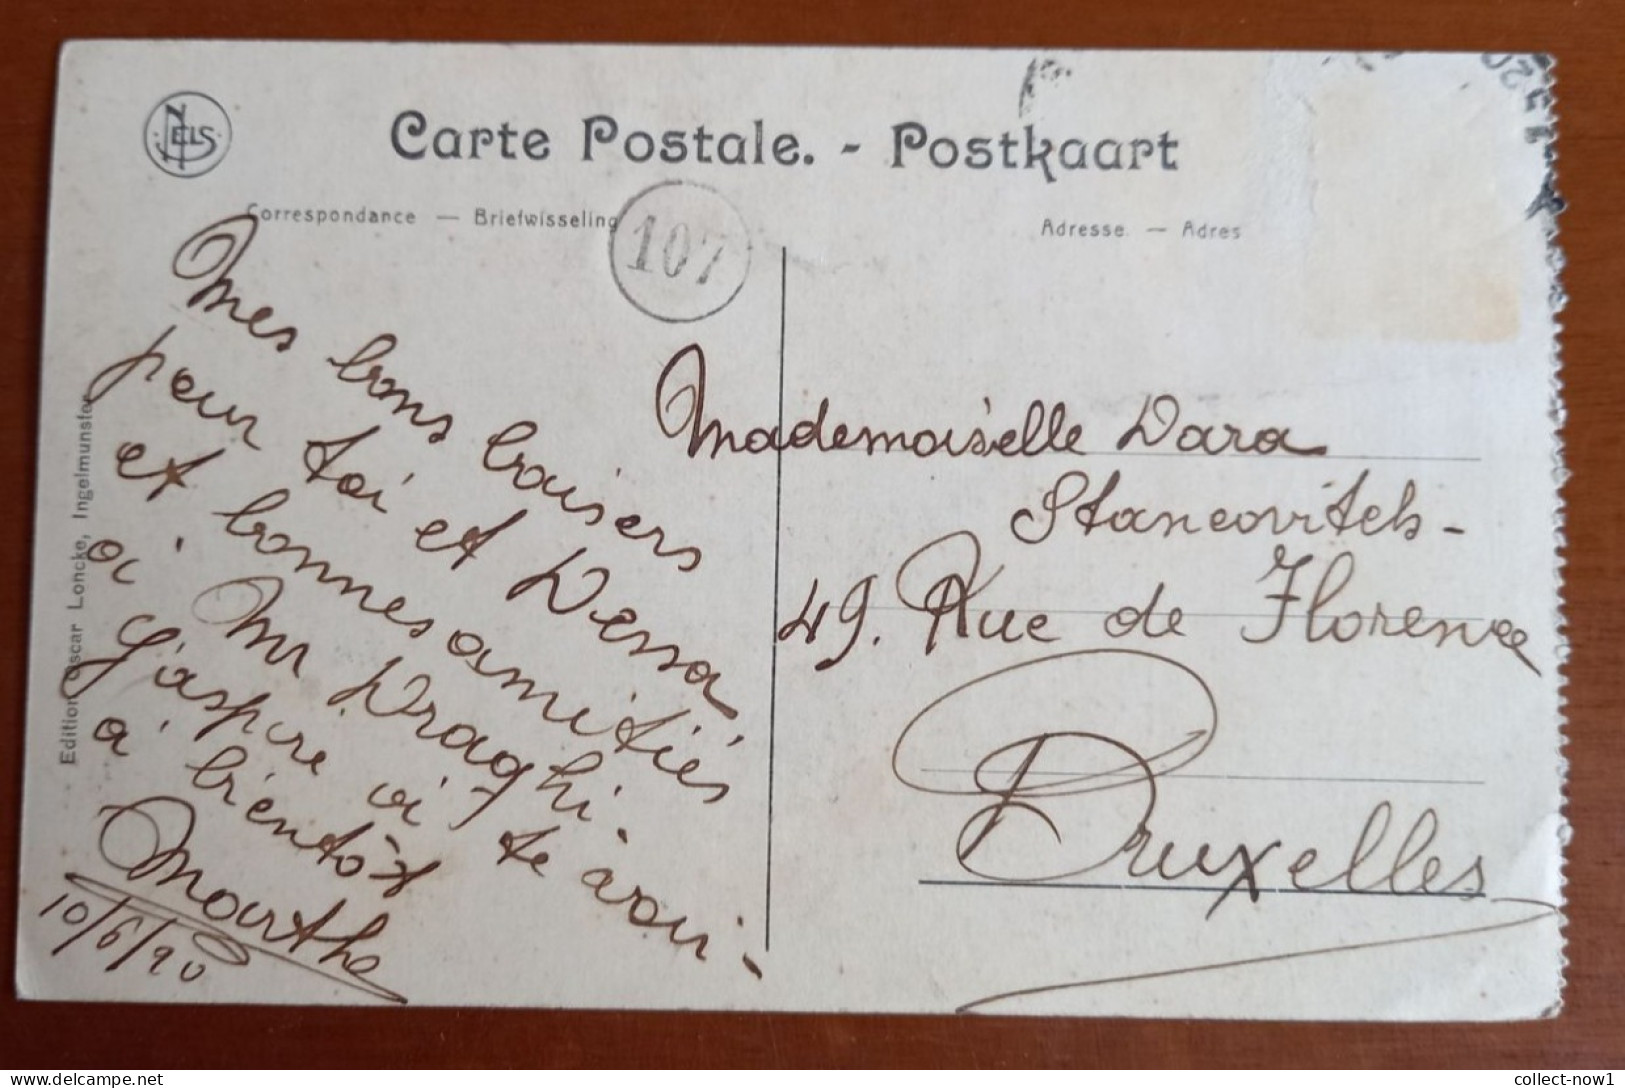 NELS
Carte Postale. - Postkaart
Correspondance — Briefwisseling
107
Adresse. — Adres
Mes bons baisers
pour toi et Dessa
et bonnes amitiés
à Mr Draghi.
J'aspire à te ravoir
à bientôt
Marthe
10/6/20
Mademoiselle Dara
Stancovitch-
49. Rue de Florence
Bruxelles
Edition Oscar Loncke, Ingelmunster
delcampe.net
collect-now1